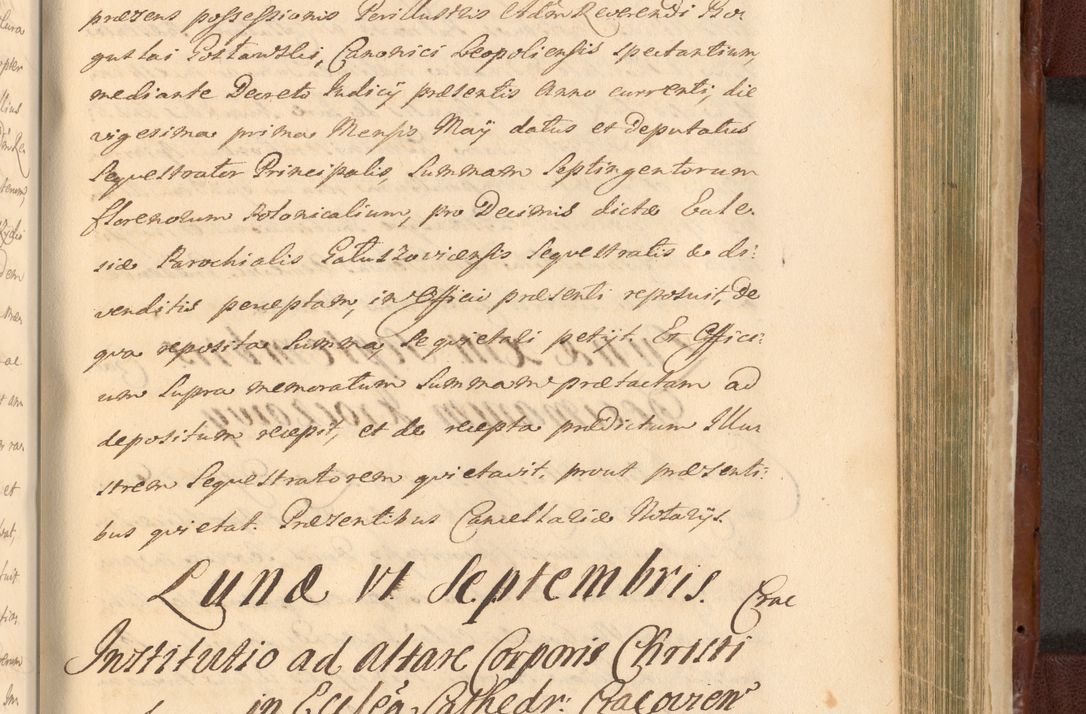 præzens possessionis Perillustris et Adm Reverendi Bo-
guslai Postawski, Canonici Leopoliensis spectantium,
mediante Decreto Judicij præsentis Anno currenti, die
vigesima prima Mensis Maij datus et Deputatus
Sequestrator Principalis, Summam Septingentorum
florenorum Polonicalium, pro Decimis dictæ Eccle-
siæ Parochialis Galuszoviensis sequestratis & di:
venditis perceptam, in Officii præsenti reposuit, De
qua reposita Summa, se quietali petijt. Et Offici:
um Supra memoratum Summam prætactam ad
depositum recepit, et de recepta prædictum Illu-
strem Sequestratorem quietavit, prout præsenti:
bus quietat. Præzentibus Cancellariæ Notarijs.
Lunæ VI Septembris. Crac
Institutio ad altare Corporis Christi
in Eccleã Cathedr: Cracovien